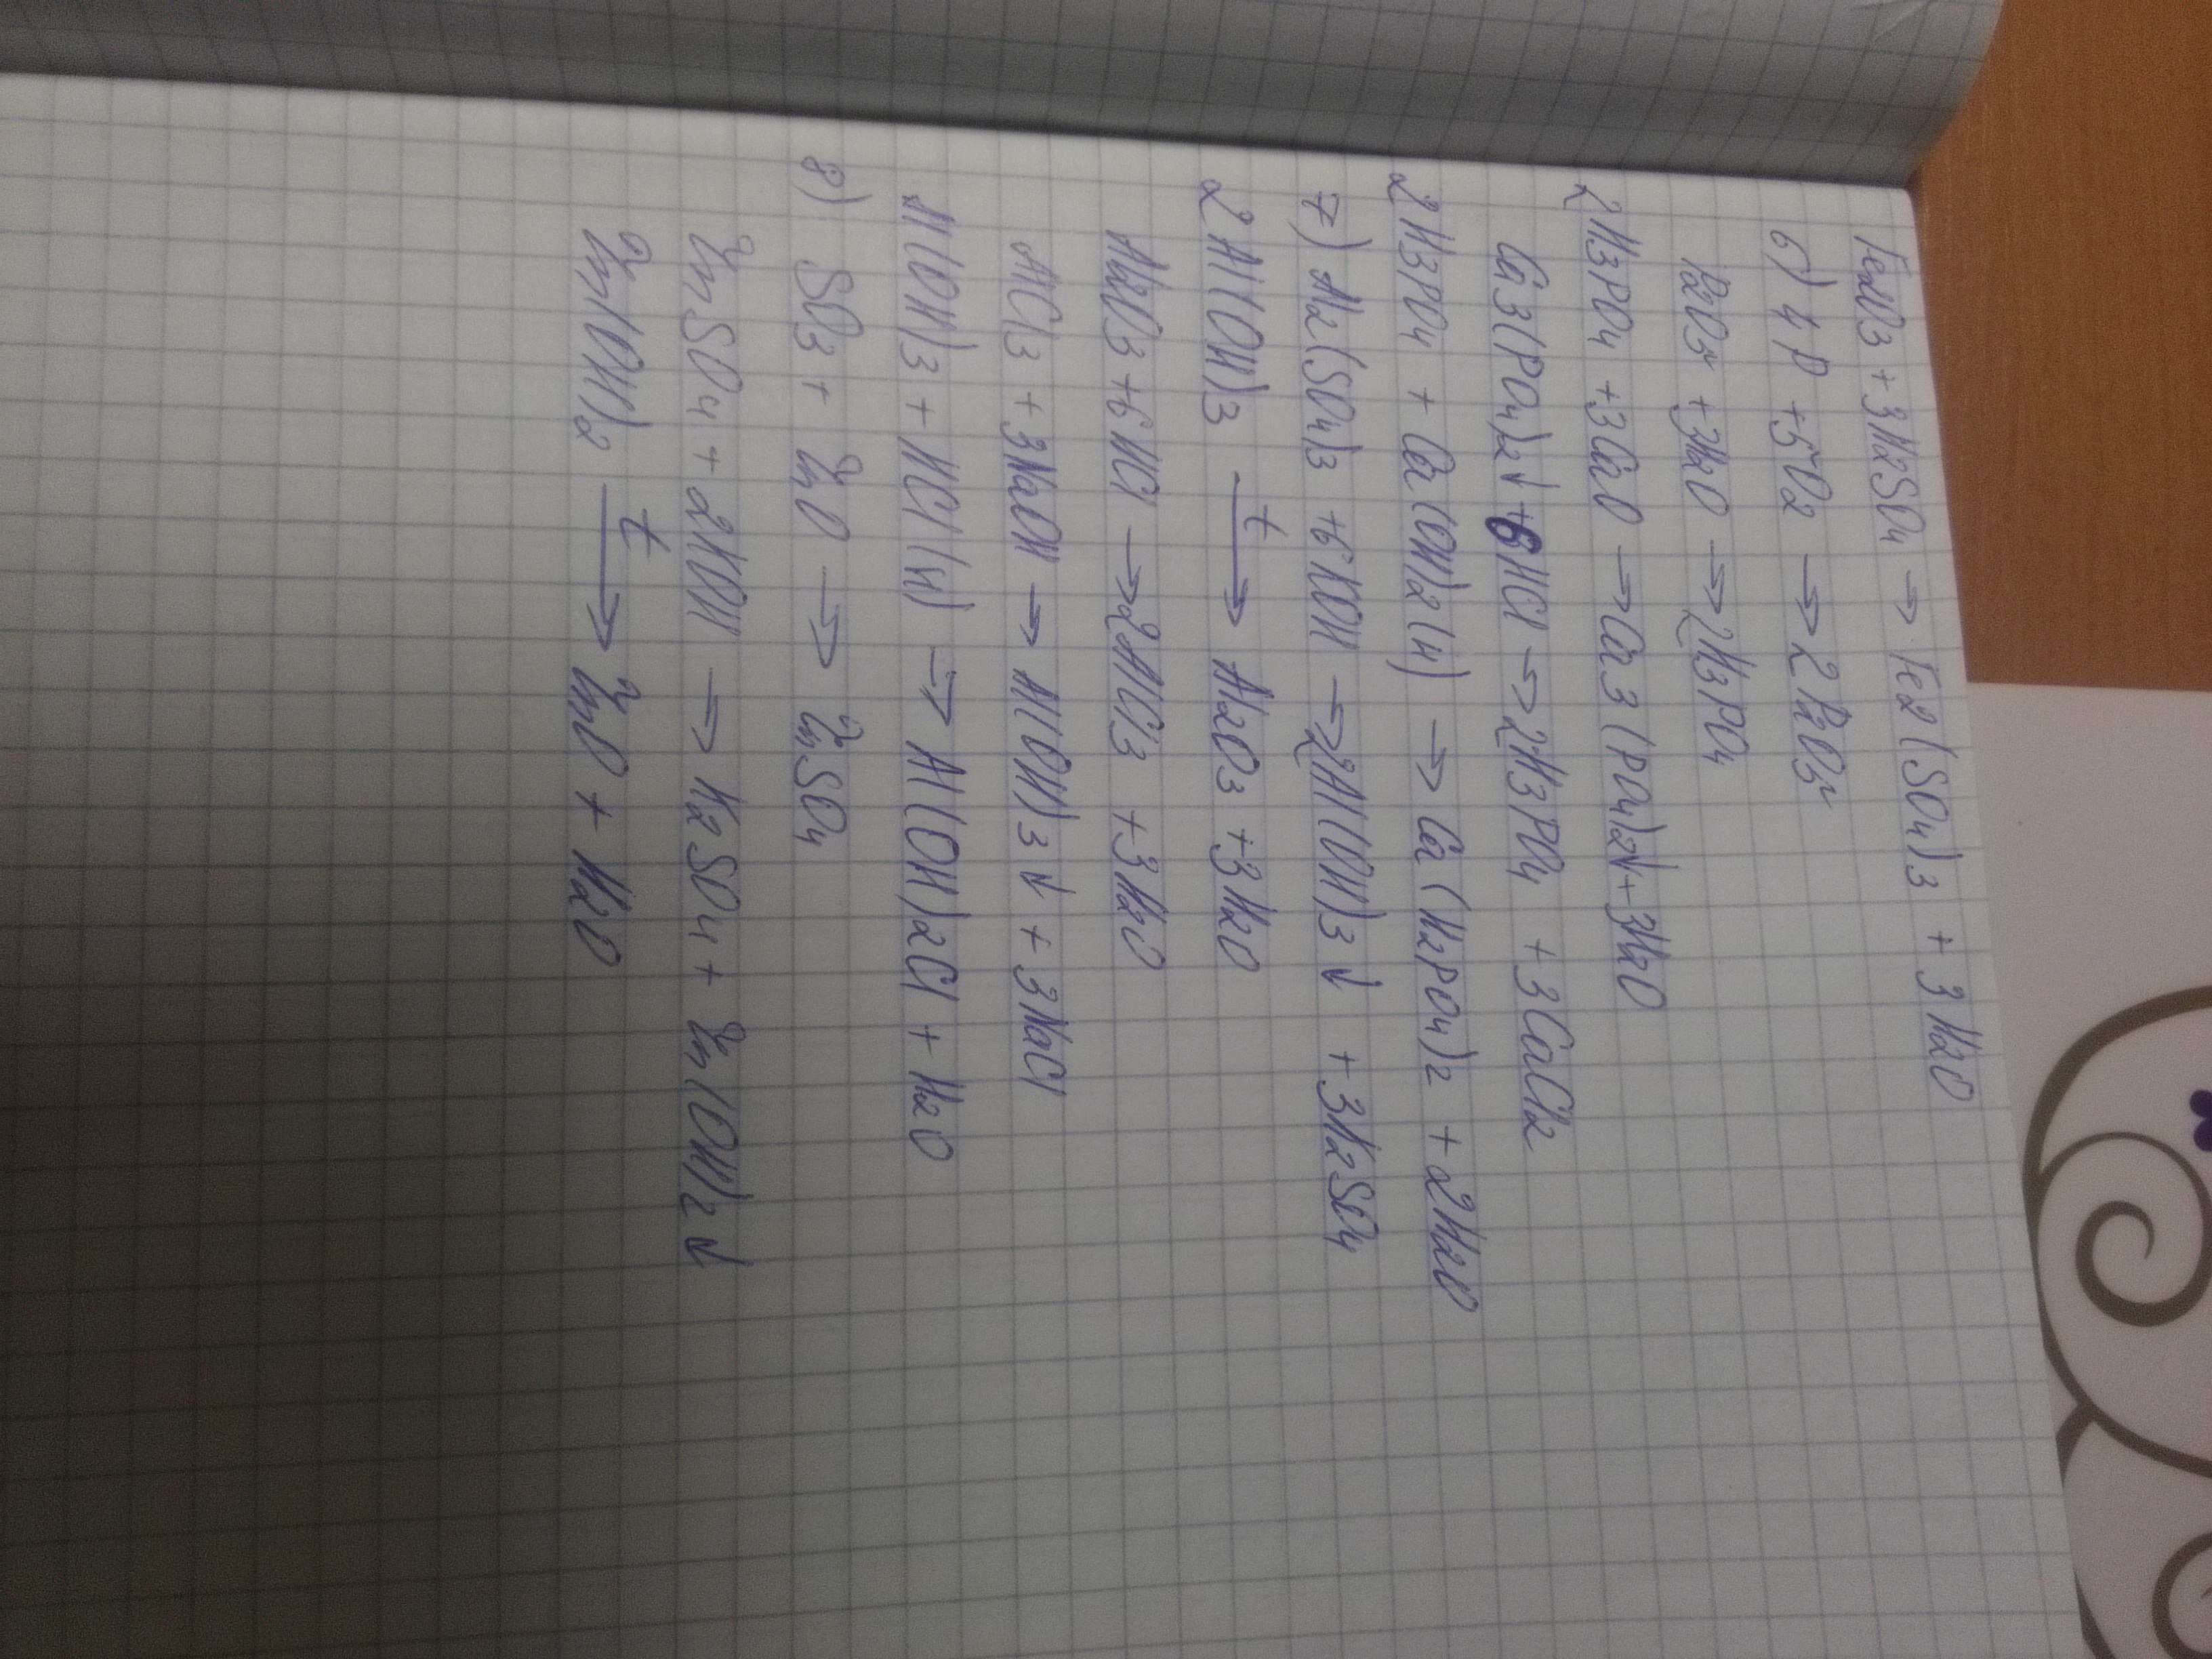 Fe2O3 + 3H2SO4 → Fe2(SO4)3 + 3H2O
6) 4P + 5O2 → 2P2O5
P2O5 + 3H2O → 2H3PO4
2H3PO4 + 3CaO → Ca3(PO4)2↓ + 3H2O
Ca3(PO4)2↓ + 6HCl → 2H3PO4 + 3CaCl2
2H3PO4 + Ca(OH)2(н) → Ca(H2PO4)2 + 2H2O
7) Al2(SO4)3 + 6KOH → 2Al(OH)3↓ + 3K2SO4
2Al(OH)3 t→ Al2O3 + 3H2O
Al2O3 + 6HCl → 2AlCl3 + 3H2O
AlCl3 + 3NaOH → Al(OH)3↓ + 3NaCl
Al(OH)3 + HCl(н) → Al(OH)2Cl + H2O
8) SO3 + ZnO → ZnSO4
ZnSO4 + 2KOH → K2SO4 + Zn(OH)2↓
Zn(OH)2 t→ ZnO + H2O